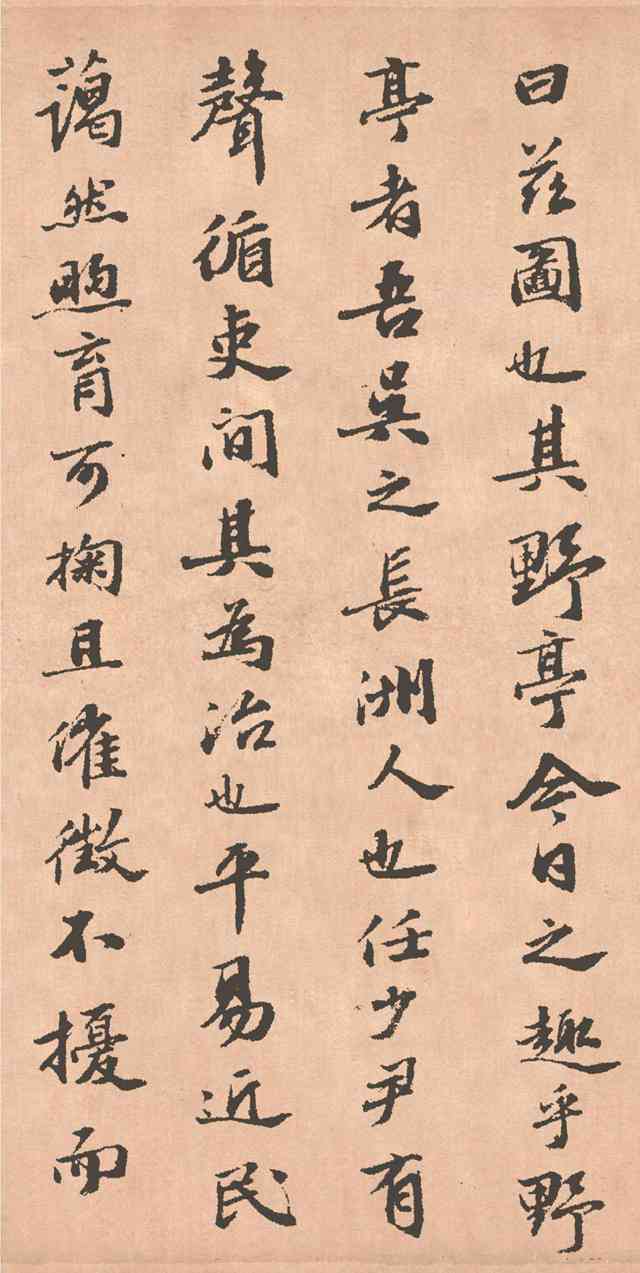 曰茲圖也其野亭今日之趣乎野
亭者吾吳之長洲人也任少尹有
聲循吏間其為治也平易近民
藹然煦育可掬且催徵不擾而